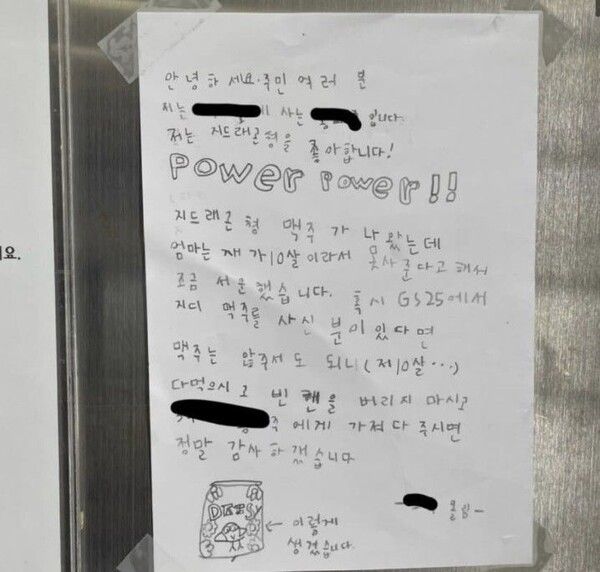 안녕하세요. 주민 여러 분
저는 사는 입니다.
저는 지드래곤형을 좋아합니다!
POWER POWER!!
지드래곤형 맥주가 나왔는데
엄마는 제가 10살이라서 못사준다고 해서
조금 서운했습니다. 혹시 GS25에서
지디 맥주를 사신 분이 있다면
맥주는 않주셔도 되니(저10살...)
다먹으시고 빈캔을 버리지 마시고
에게 가져다 주시면
정말 감사하겠습니다
올림-
DAISY
← 이렇게
생겼습니다.
요.